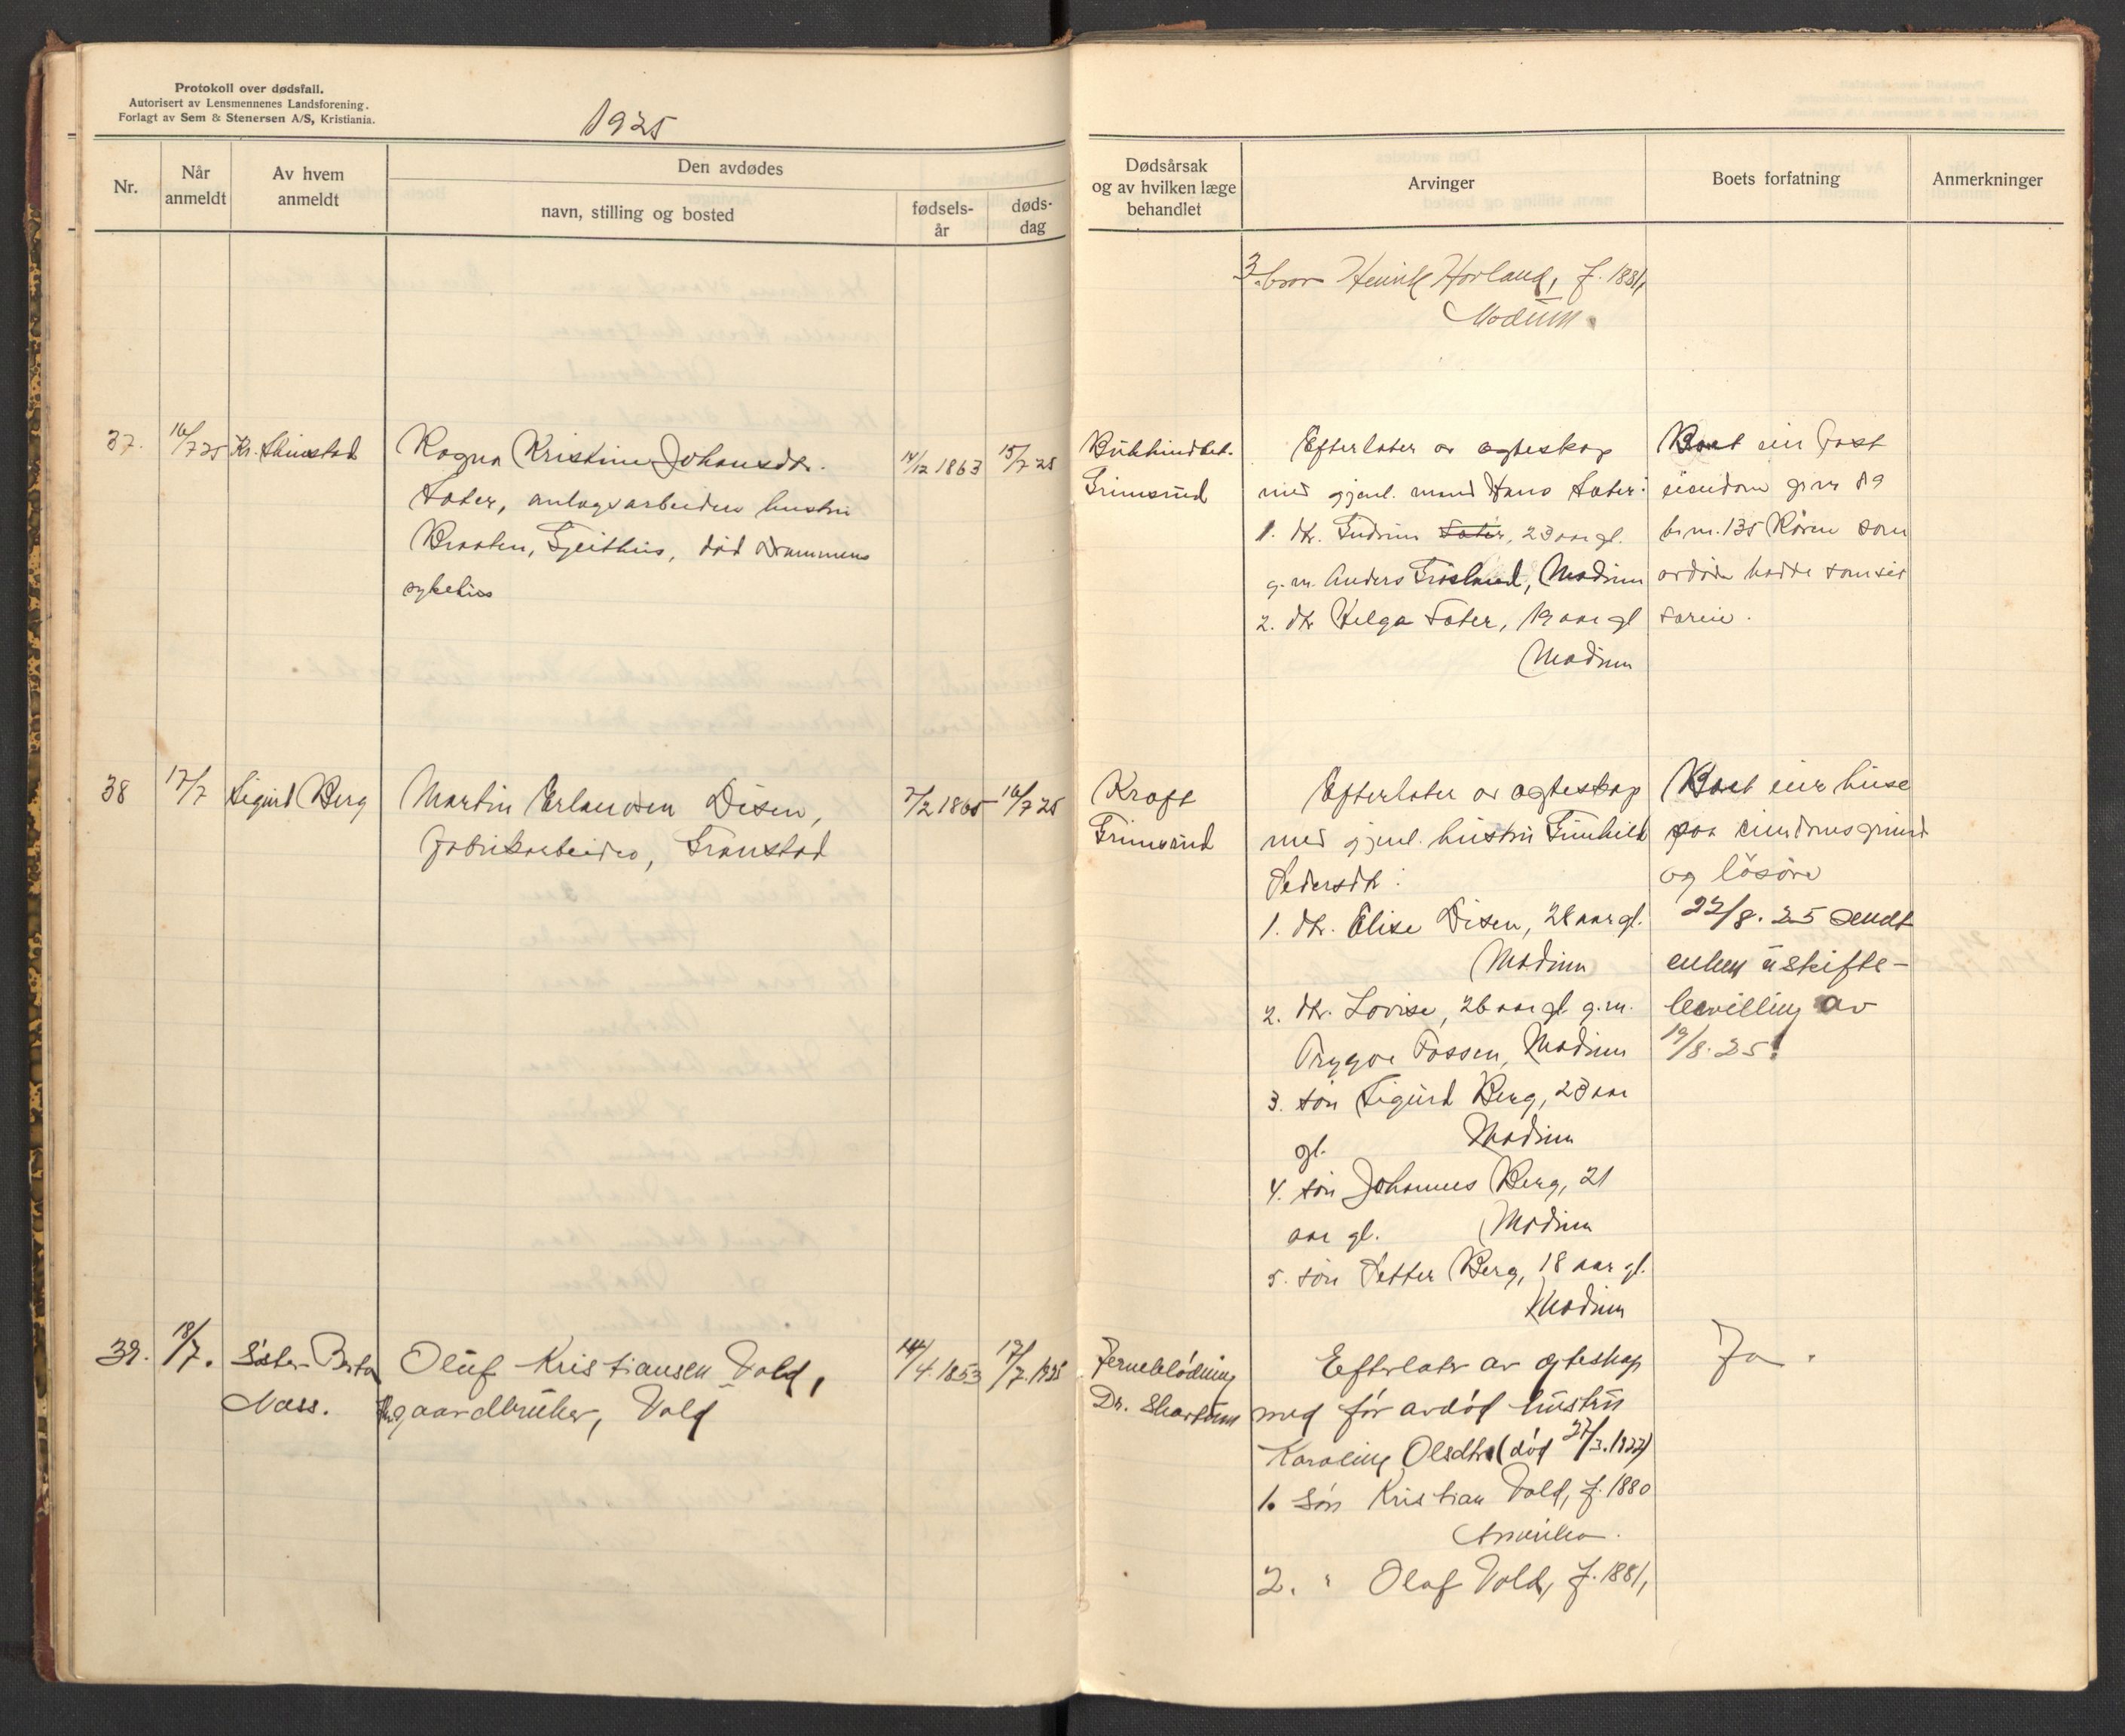 Protokoll over dødsfall.
Autorisert av Lensmennenes Landsforening.
Forlagt av Sem & Stenersen A/S, Kristiania.
1925
Nr.
Når
anmeldt
Av hvem
anmeldt
Den avdødes
navn, stilling og bosted
fødsels-
år
døds-
dag
Dødsårsak
og av hvilken læge
behandlet
Arvinger
Boets forfatning
Anmerkninger
3. bror Henrik Hovland, f. 1881,
Modum.
37.
16/7 25
Kr.
Ragna Kristine Johansdtr.
Sater, anlagsarbeiders hustru
Braaten, Geithus, død Drammens
sykehus
14/12 1863
15/7 25
Bukhindbet.
Grimsrud
Efterlater av egteskap
med gjenl. mand Hans Sater:
1. dtr. Gudrun Sater, 23 aar gl.
g. m. Anders Frøsland, Modum
2. dtr Helga Sater, 19 aar gl
Modum
Boet eier fast
eiendom g.nr 89
br.nr. 135 Kåren som
avdøde hadde som sær
eie.
38
17/7
Sigurd Berg
Martin Erlandsen Disen,
fabrikarbeider, Granstad
7/2 1865
16/7 25
Kræft
Grimsrud
Efterlater av egteskap
med gjenl. hustru Gunhild
Pedersdtr:
1. dtr. Elise Disen, 28 aar gl.
Modum
2. dtr. Lovise, 26 aar gl. g.m.
Trygve Fossen, Modum
3. søn Sigurd Berg, 23 aar
gl. Modum
4. søn Johannes Berg, 21
aar gl. Modum
5. søn Petter Berg, 18 aar gl.
Modum
Boet eier huse
paa eiendomsgrund
og løsøre
22/8. 25 sendt
enken uskifte-
bevilling av
19/8. 25.
39.
18/7.
Søster Berta
Næss.
Oluf Kristiansen Vold,
gaardbruker, Vold
14/4. 1853
17/7. 1925
Jerneblødning
Dr. Skartum
Efterlater av egteskap
med før avdød hustru
Karoline Olsdtr (død 27/3. 1922)
1. Søn Kristian Vold, f. 1880
Amerika.
2. " Olaf Vold, f. 1881,
Ja.